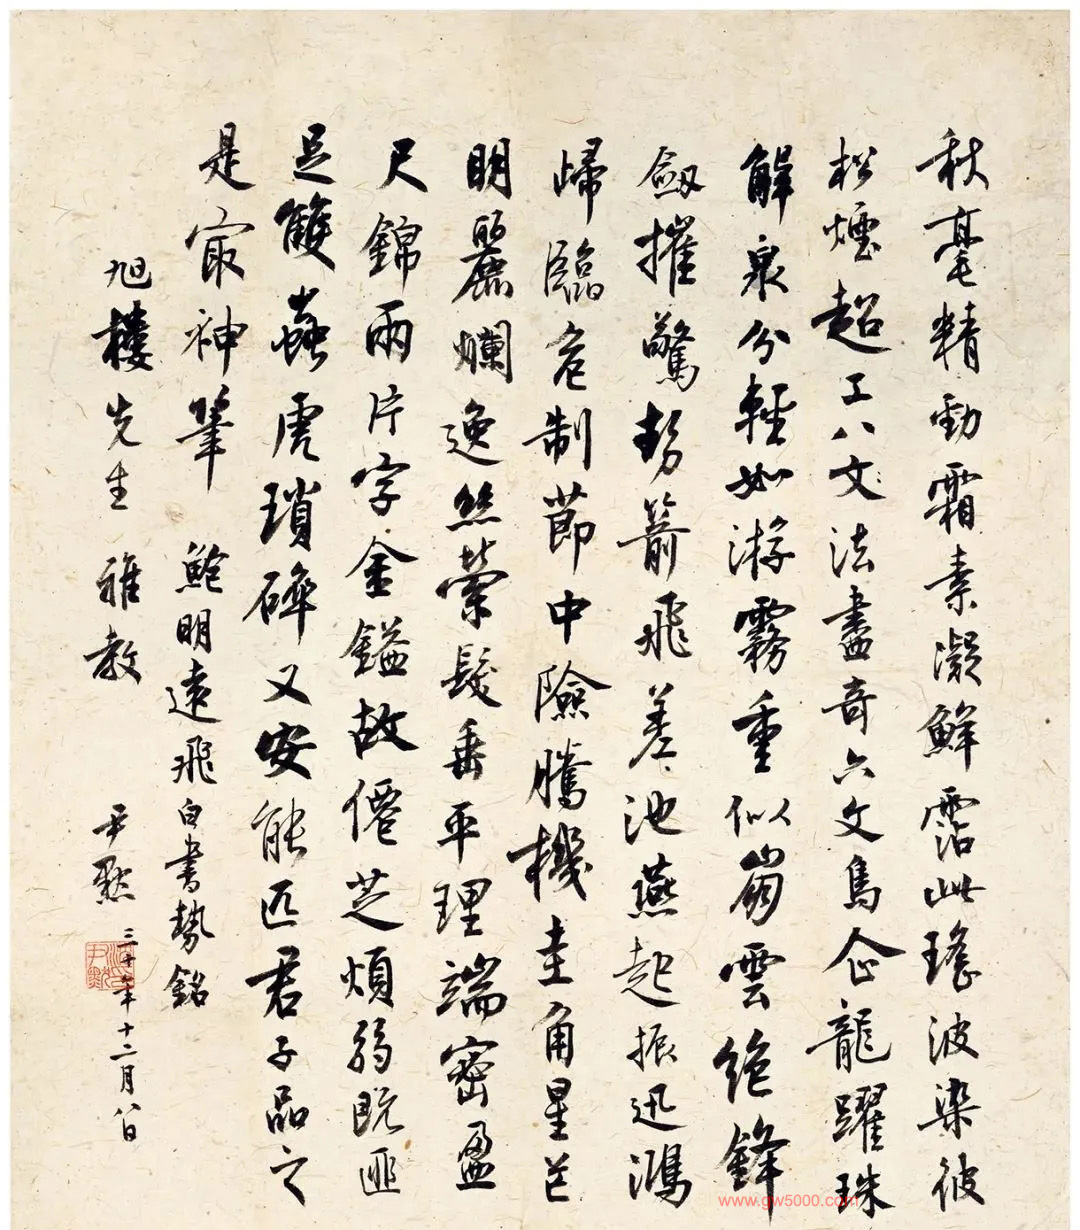 秋毫精勁霜素凝鮮霑此瑤波染彼
松煙超工八文法盡奇六文鳥企龍躍珠
解泉分輕如游霧重似崩雲絶鋒
劔摧驚勢箭飛差池燕起振迅鴻
歸臨危制節中險騰機圭角星芒
明麗爛逸絲縈髮垂平理端密盈
尺錦兩片字金鎰故僊芝煩弱既匪
足雙蟲虎瑣碎又安能匹君子品之
是㝡神筆 鮑明遠飛白書勢銘
旭樓先生 雅教 尹默 三十年十二月八日
www.gw5000.com